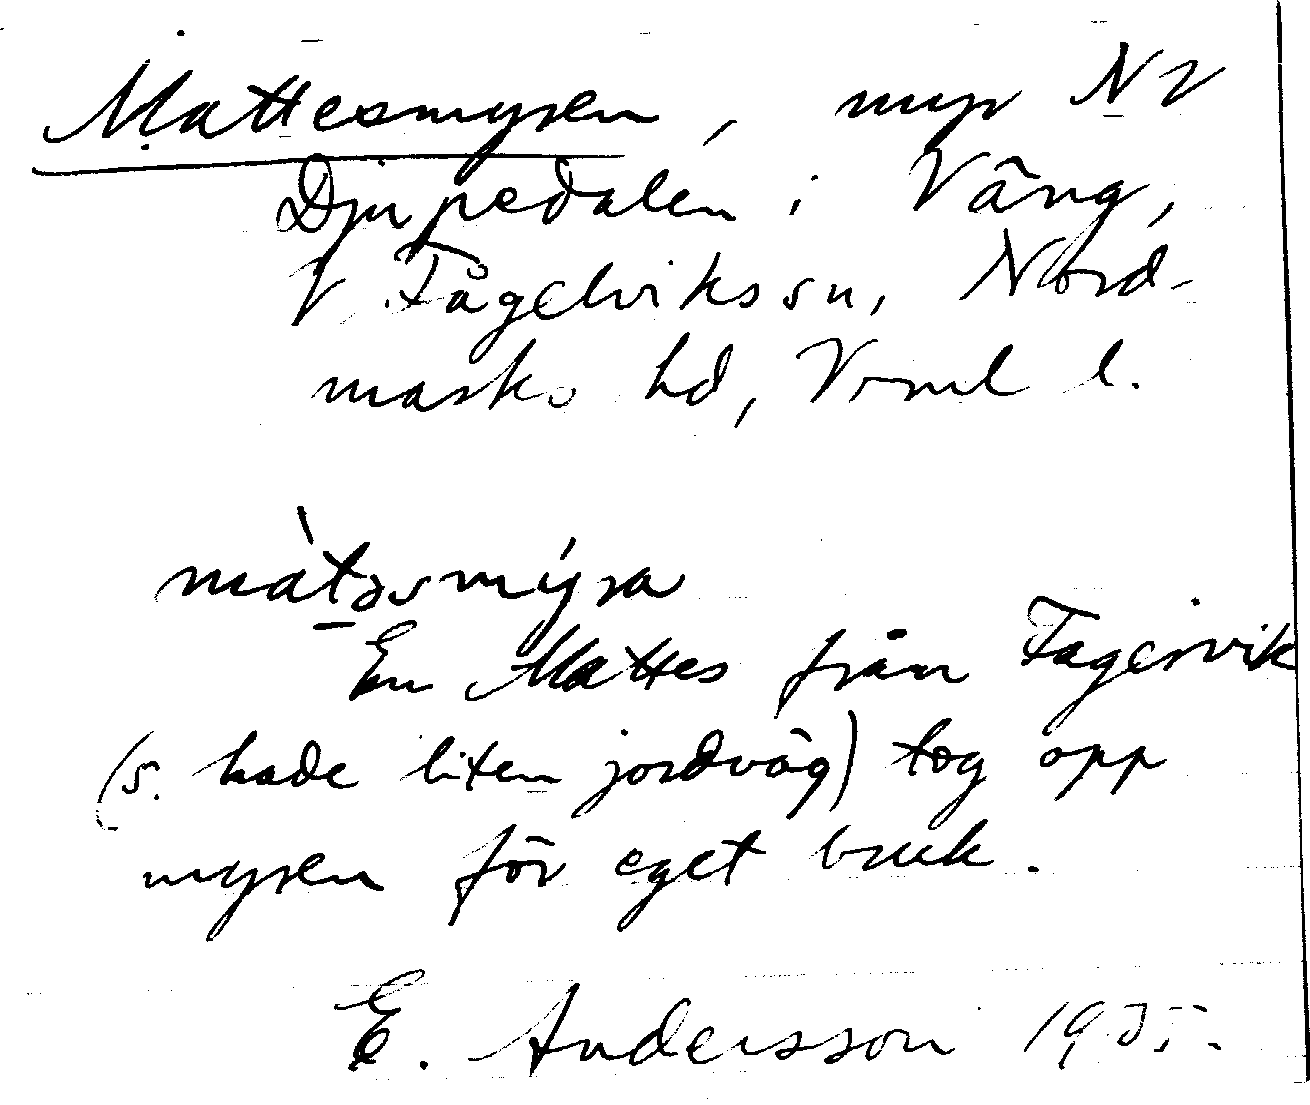 Mattesmyren, myr NV
Djupedalen i Väng,
V. Fågelvikssn, Nord-
marks hd, Vrml l.
màt̲əsmýra
En Mattes från Fagervik
(s. hade liten jordväg) tog opp
myren för eget bruk.
E. Andersson 1935.